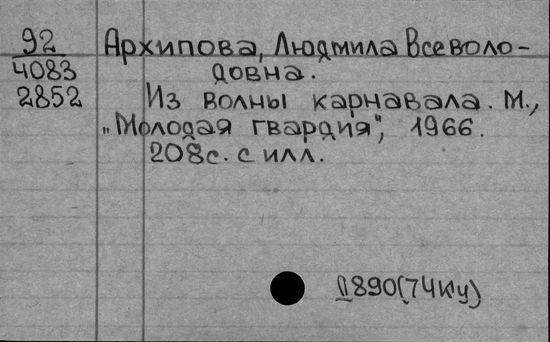 92
4083
2852
Архипова, Людмила Всеволо-
довна.
Из волны карнавала. М.,
„Молодая гвардия", 1966.
208с. с илл.
II890(74Ку)